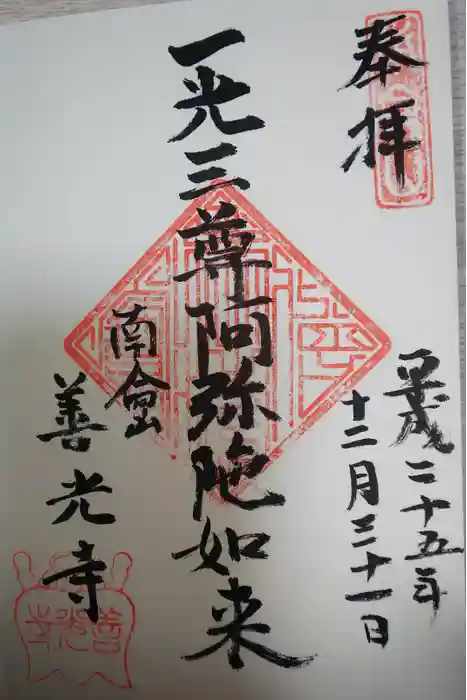 奉拝
平成二十五年
十二月三十一日
一光三尊阿弥陀如来
善光寺
善光寺